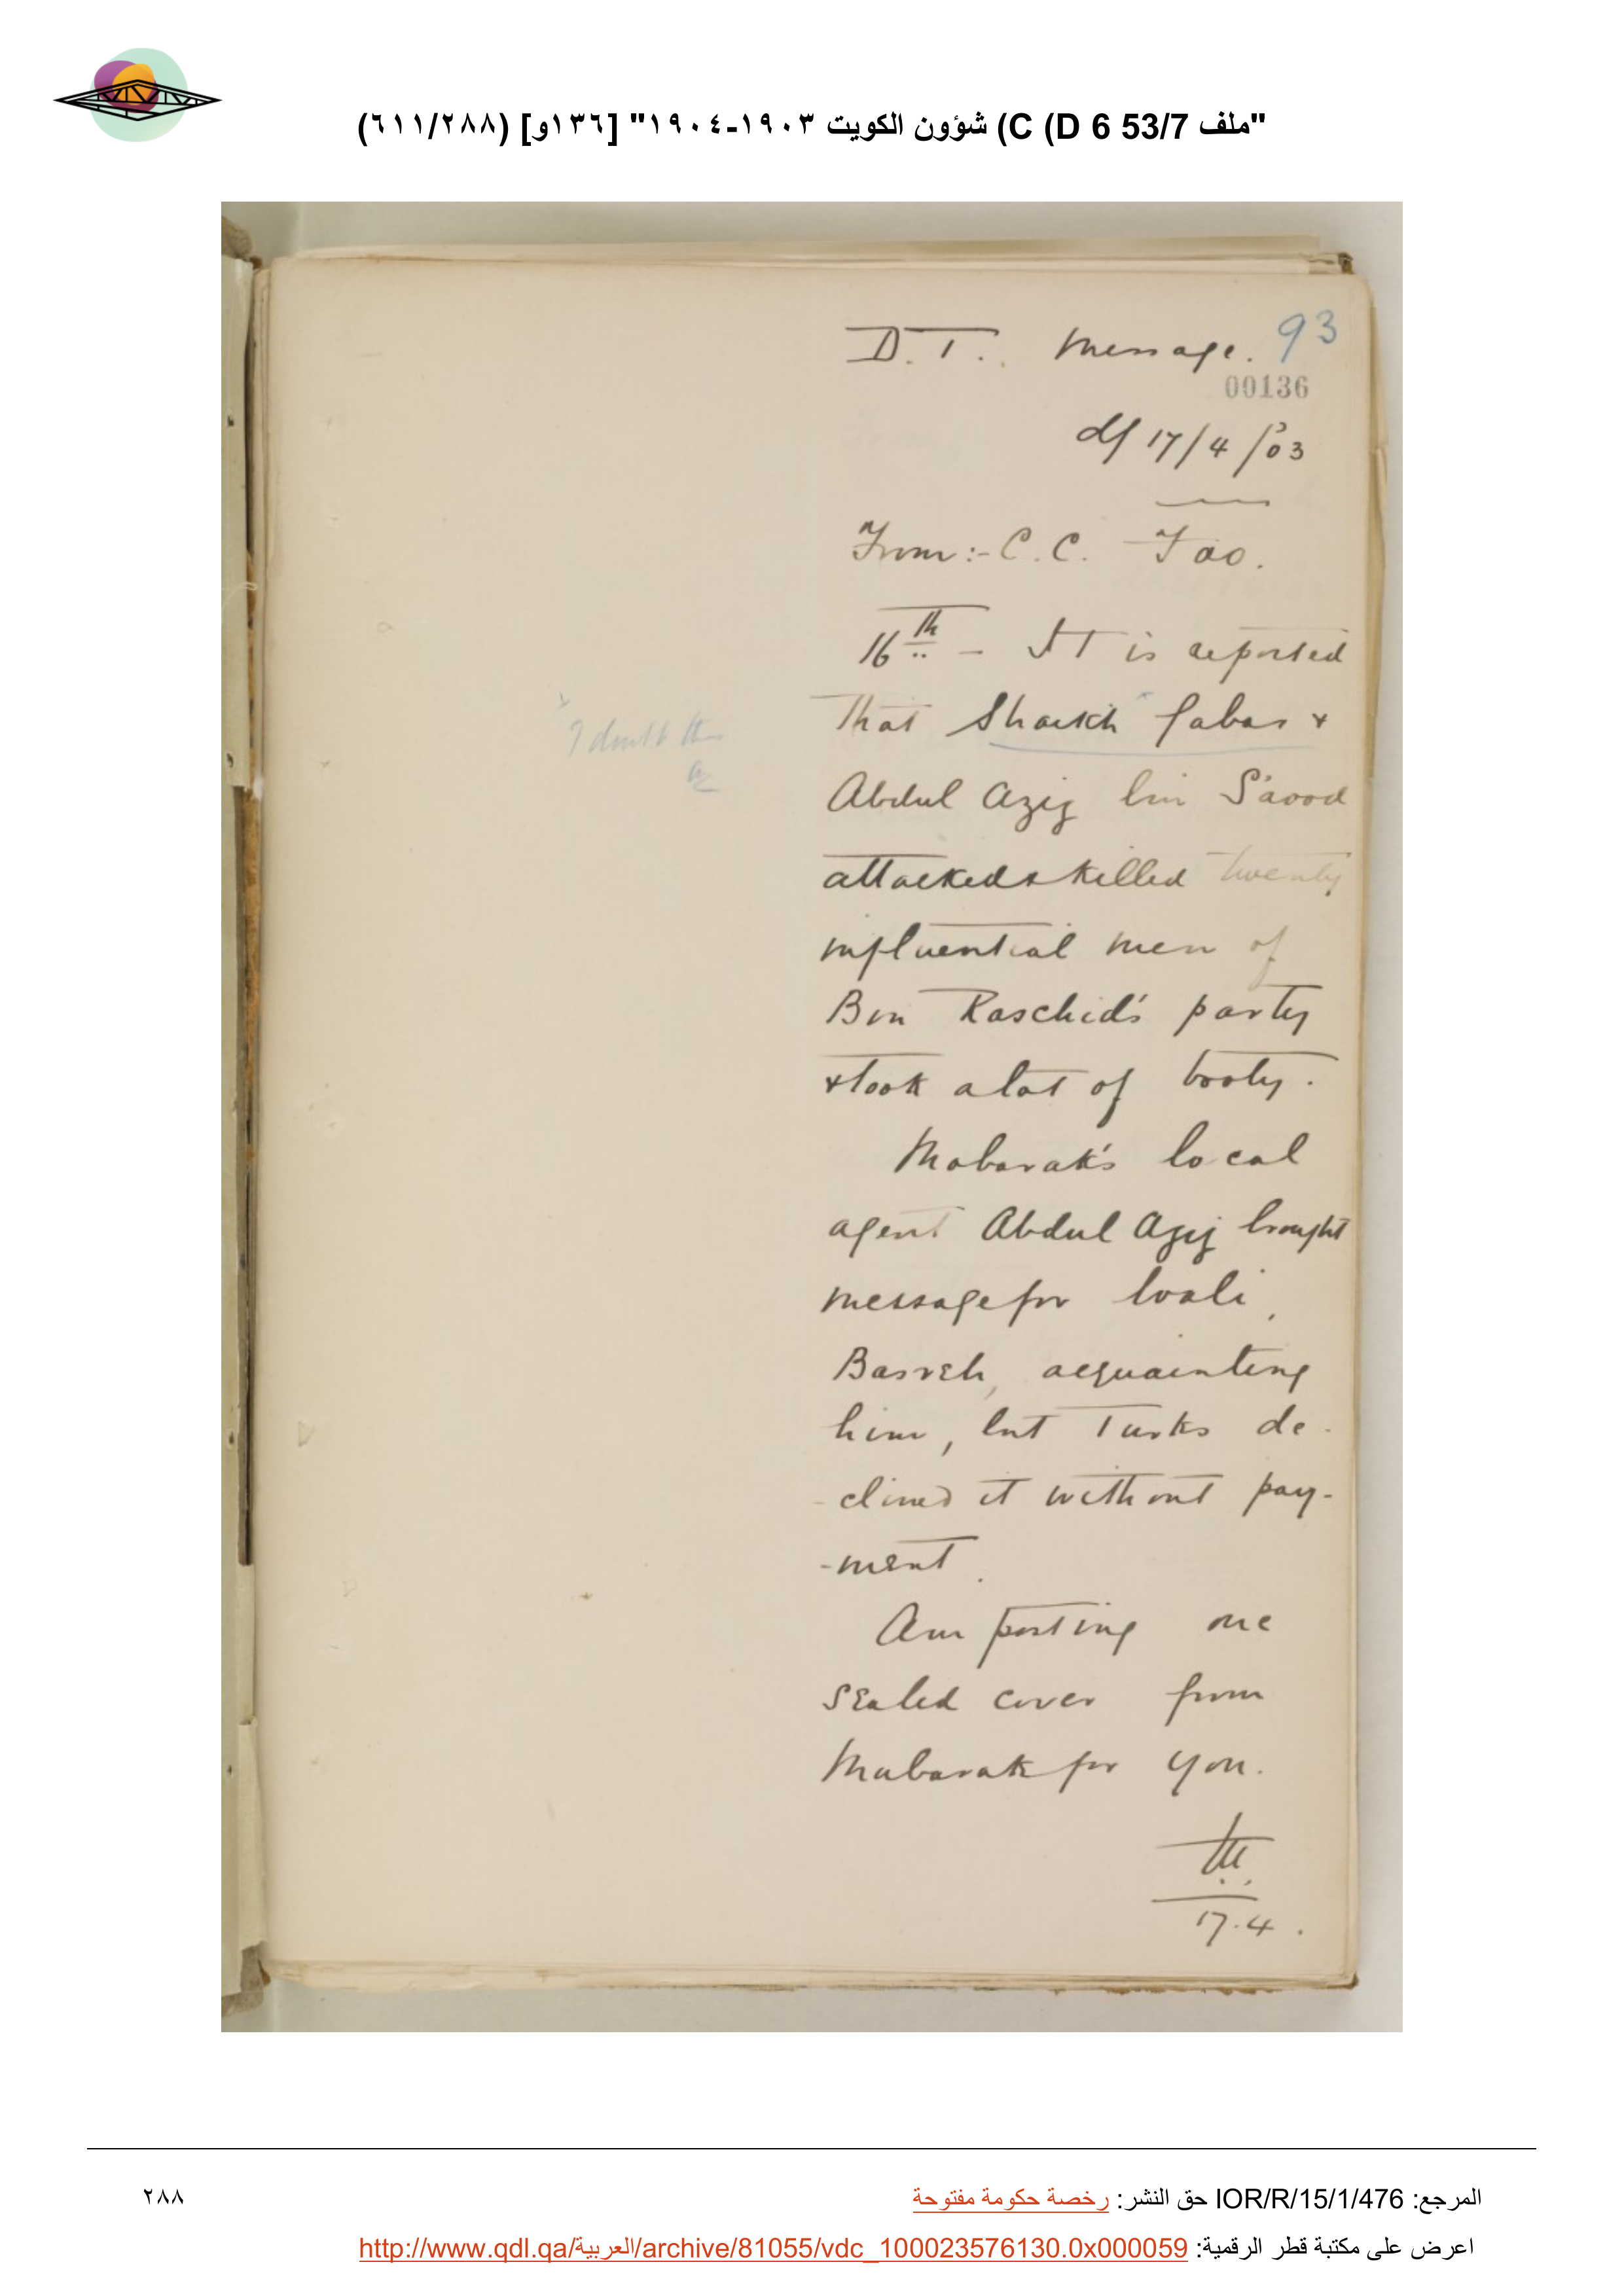 "ملف 53/7 D 6) C) شؤون الكويت ١٩٠٣-١٩٠٤" [١٣٦و] (٦١١/٢٨٨)
D. T. Message. 93
00136
d/ 17/4/03
From:- C. C. Fao.
16th - It is reported
that Shaikh Jabar &
I doubt this
Abdul Aziz bin S'aood
attacked & killed twenty
influential men of
Bin Raschid's party
& took a lot of booty.
Mobarak's local
agent Abdul Aziz brought
message for Wali,
Basreh, acquainting
him, but Turks de-
-clined it without pay-
-ment.
Am posting one
sealed cover from
Mubarak for you.
17.4.
المرجع: IOR/R/15/1/476 حق النشر: رخصة حكومة مفتوحة
٢٨٨
اعرض على مكتبة قطر الرقمية: http://www.qdl.qa/العربية/archive/81055/vdc_100023576130.0x000059